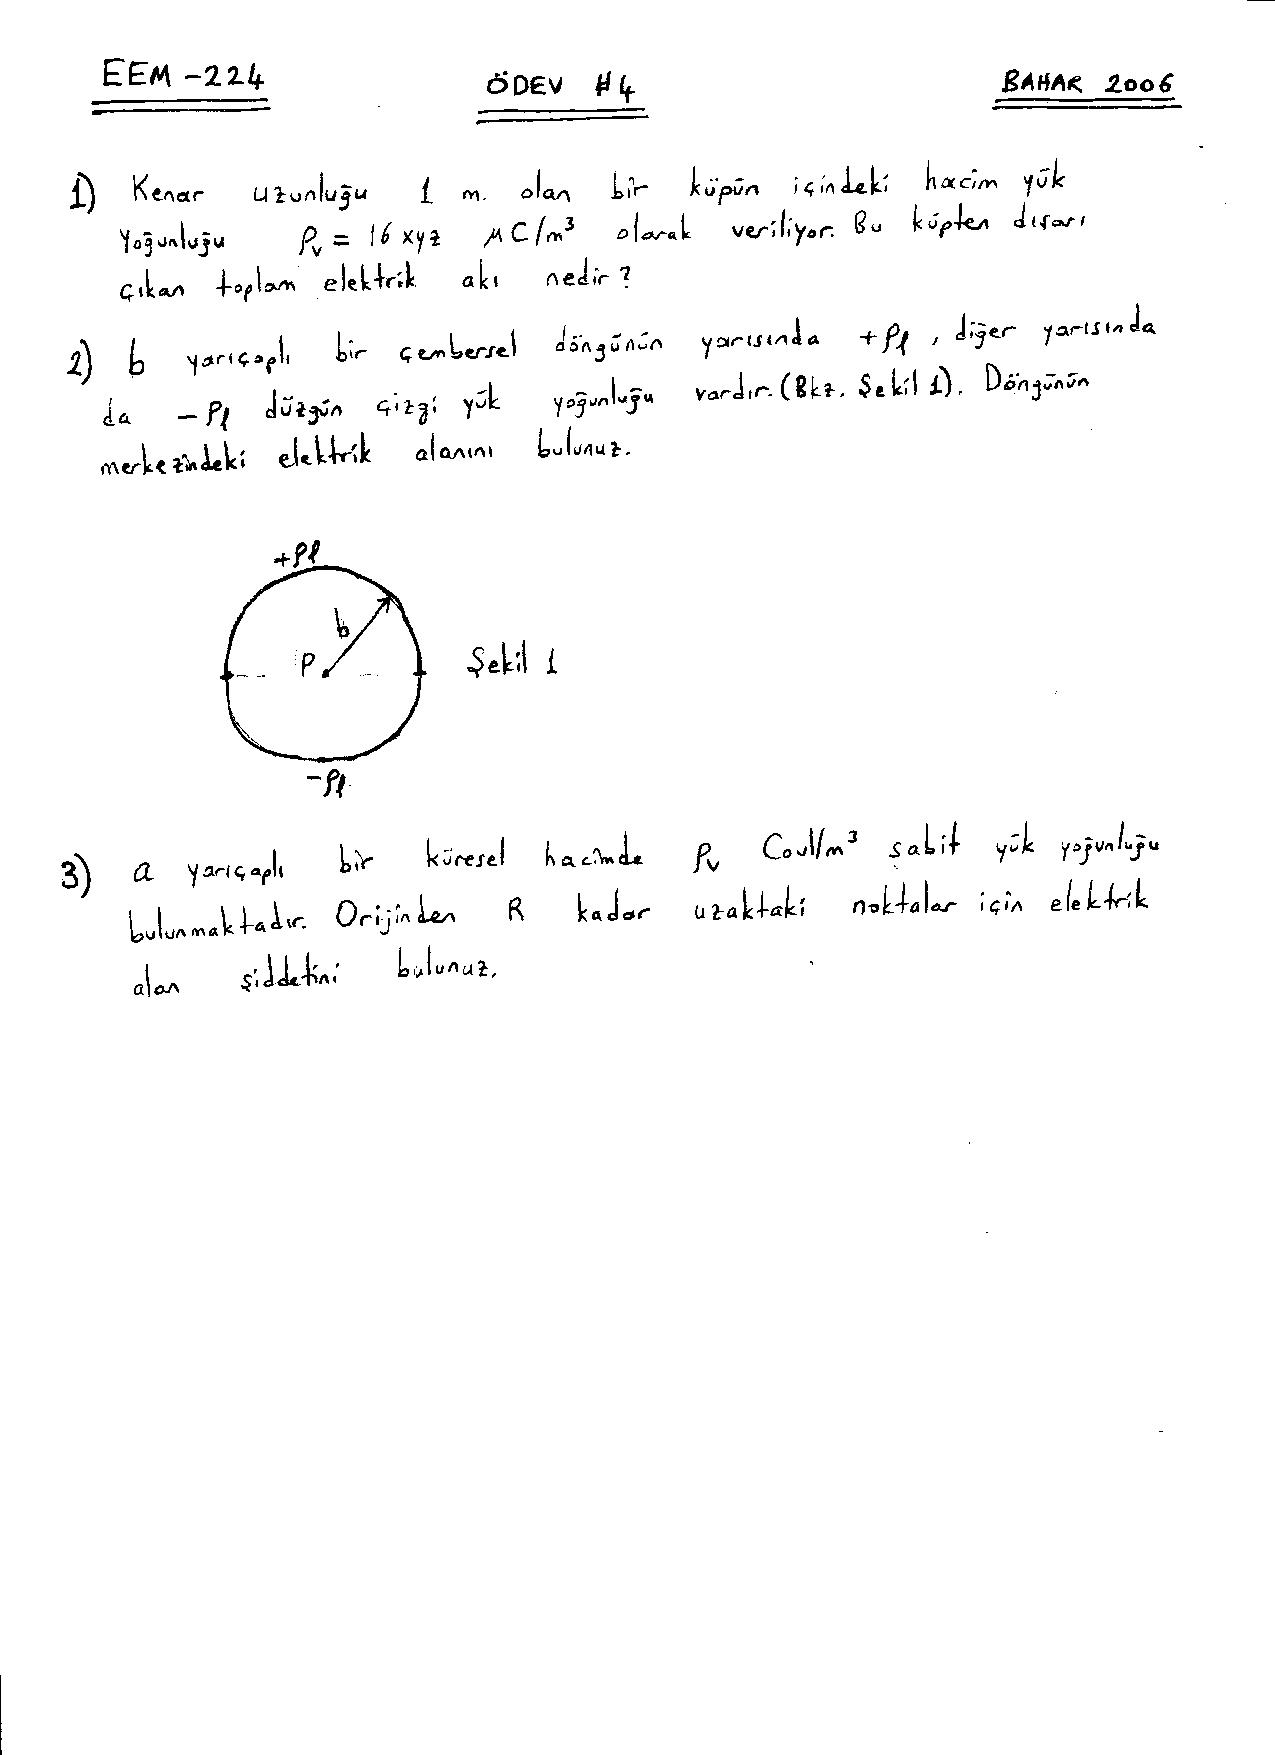 EEM-224 ÖDEV #4 BAHAR 2006
1) Kenar uzunluğu 1 m. olan bir küpün içindeki hacim yük
yoğunluğu ρv = 16 xyz μC/m³ olarak veriliyor. Bu küpten dışarı
çıkan toplam elektrik akı nedir?
2) b yarıçaplı bir çembersel döngünün yarısında +ρl, diğer yarısında
da -ρl düzgün çizgi yük yoğunluğu vardır. (Bkz. Şekil 1). Döngünün
merkezindeki elektrik alanını bulunuz.
+ρl
b
P
Şekil 1
-ρl
3) a yarıçaplı bir küresel hacimde ρv Coul/m³ sabit yük yoğunluğu
bulunmaktadır. Orijinden R kadar uzaktaki noktalar için elektrik
alan şiddetini bulunuz.